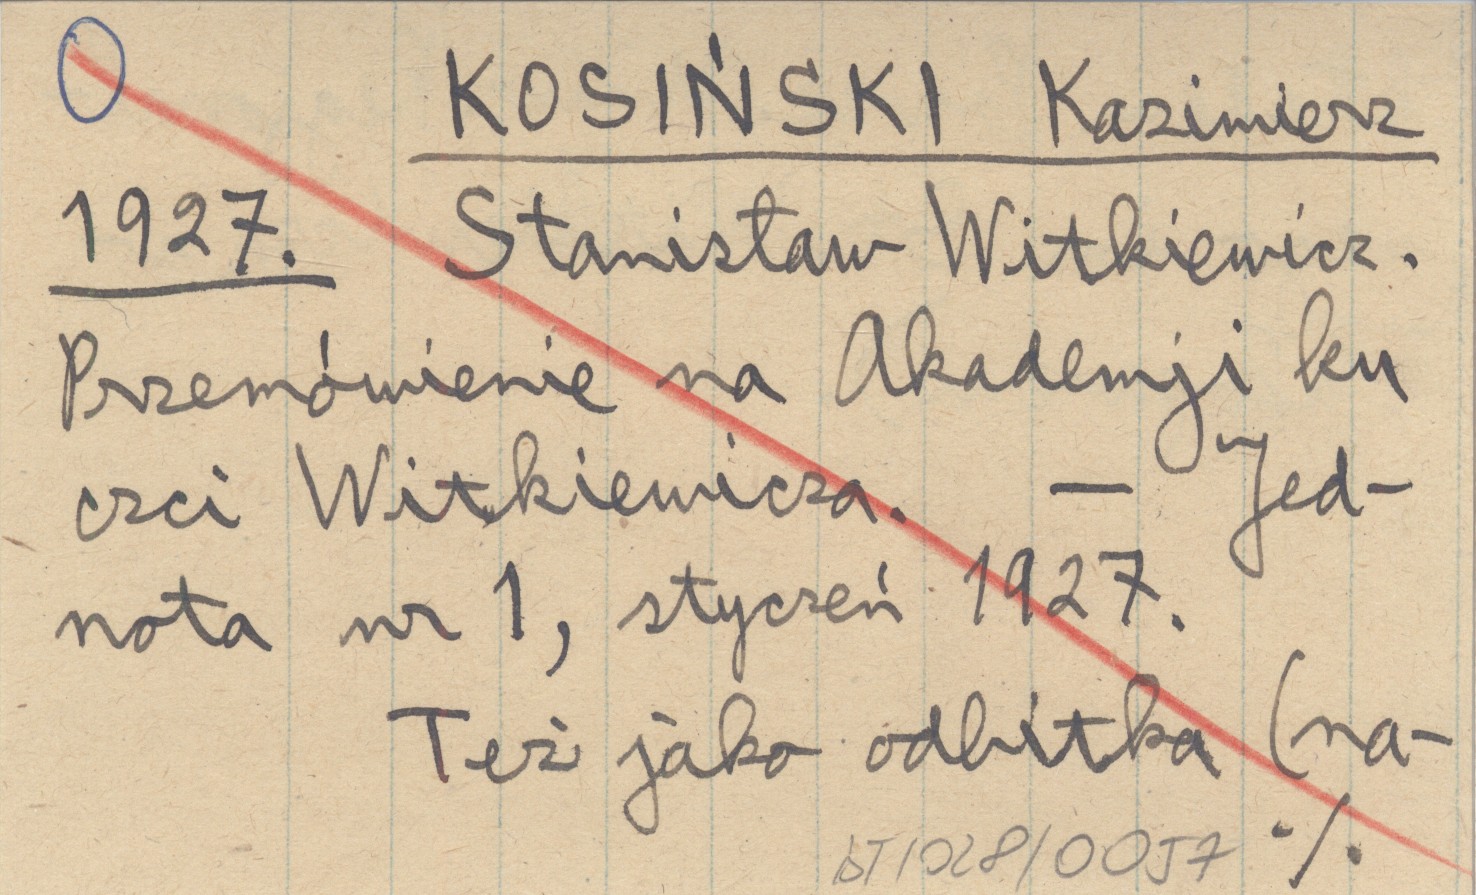 KOSIŃSKI Kazimierz
1927. Stanisław Witkiewicz.
Przemówienie na Akademji ku
czci Witkiewicza. — Jed-
nota nr 1, styczeń 1927.
Też jako odbitka (na-
./.